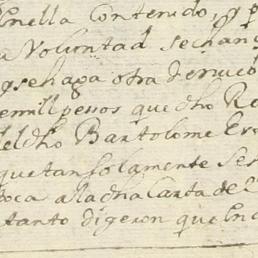 Enella Contenido, y p
a Voluntad sechan
gsehaga otra de
emill pessos que dho Re
deldho Bartolome Er
quetansolamente Ses
boca aladha Carta de
tanto digeron que En